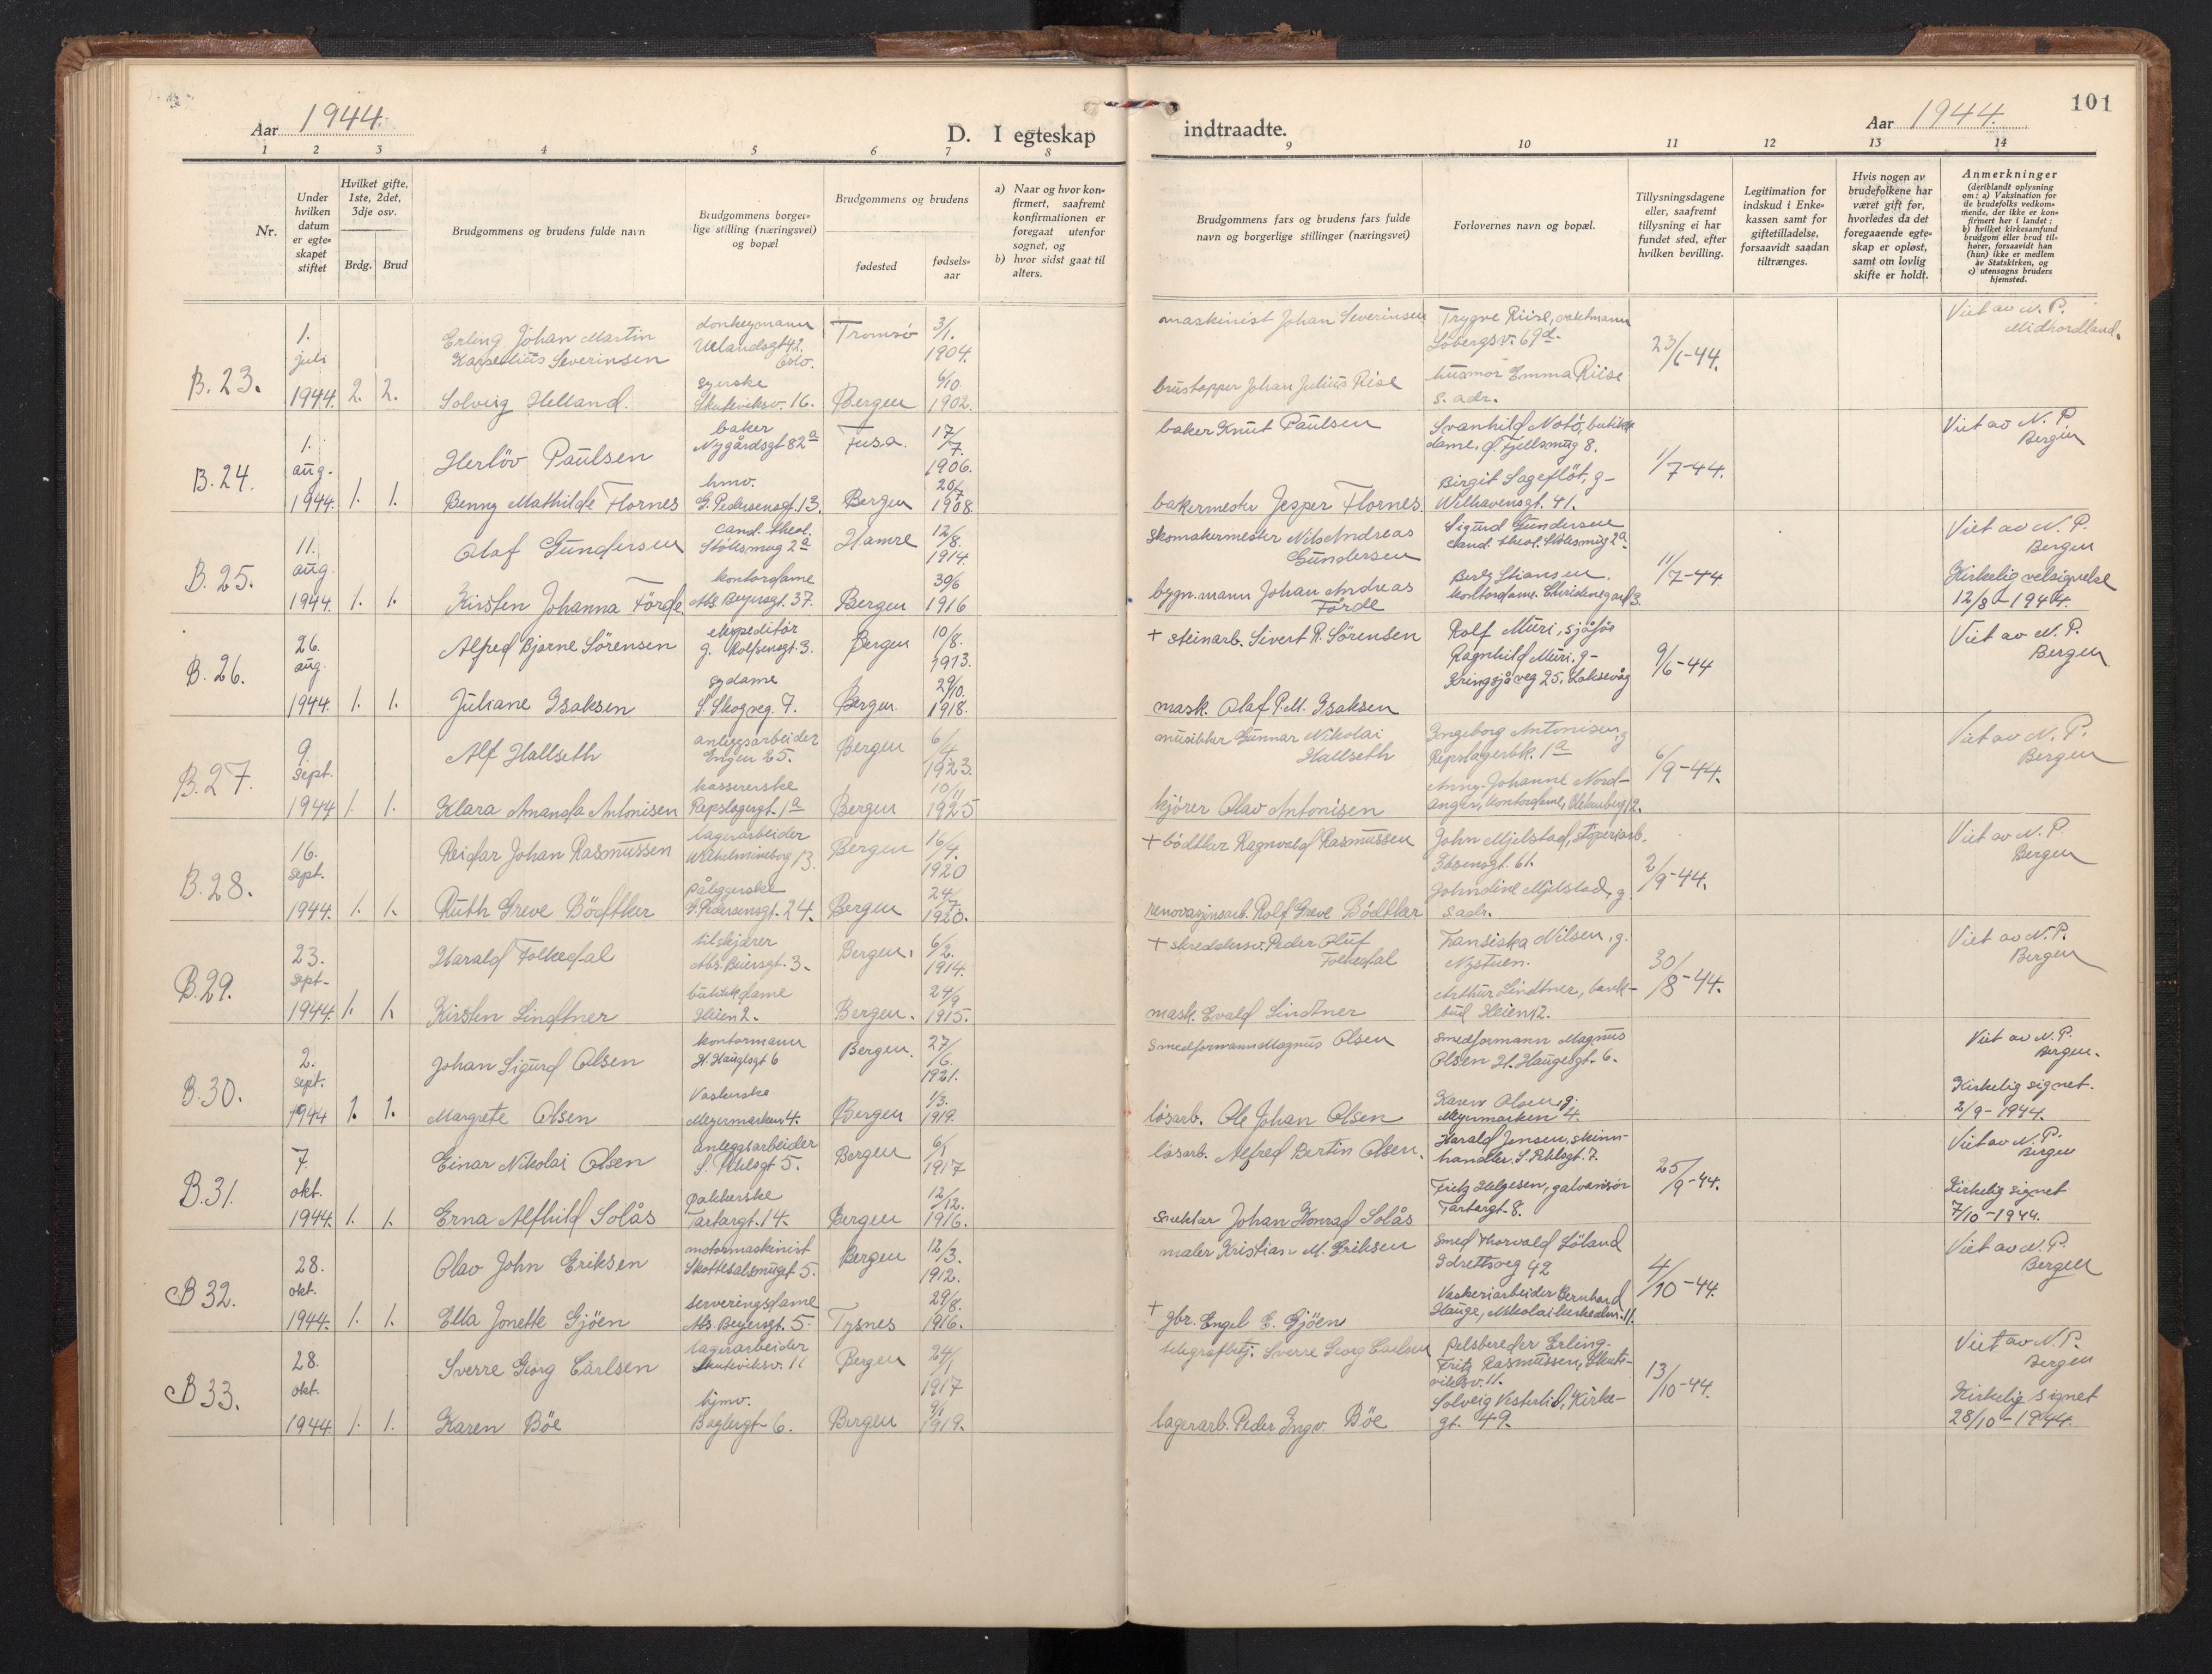 Aar 1944.
D. I egteskap
indtraadte.
Aar 1944.
101
1 2 3 4 5 6 7 8
9 10 11 12 13 14
Nr.
Under hvilken datum er egteskapet stiftet
Hvilket gifte, 1ste, 2det, 3dje osv.
Brdg. Brud
Brudgommens og brudens fulde navn
Brudgommens borgerlige stilling (næringsvei) og bopæl
Brudgommens og brudens
fødested
fødselsaar
a) Naar og hvor konfirmert, saafremt konfirmationen er foregaat utenfor sognet, og
b) hvor sidst gaat til alters.
Brudgommens fars og brudens fars fulde navn og borgerlige stillinger (næringsvei)
Forlovernes navn og bopæl.
Tillysningsdagene eller, saafremt tillysning ei har fundet sted, efter hvilken bevilling.
Legitimation for indskud i Enkekassen samt for giftetilladelse, forsaavidt saadan tiltrænges.
Hvis nogen av brudefolkene har været gift før, hvorledes da det foregaaende egteskap er opløst, samt om lovlig skifte er holdt.
Anmerkninger
(deriblandt oplysning om: a) Vaksination for de brudefolks vedkommende, der ikke er konfirmert her i landet; b) hvilket kirkesamfund brudgom eller brud tilhører, forsaavidt han (hun) ikke er medlem av Statskirken, og c) utensogns bruders hjemsted.
B. 23.
1. juli 1944. 2. 2.
Erling Johan Martin
Severinsen
donkeymann
Uelandsgt 42.
Oslo.
Tromsö
3/1. 1904.
Solveig Helland.
syerske
Skuteviksv. 16.
Bergen
6/10 1902.
maskinist Johan Severinsen
Trygve Riise,
Löbergsv. 69d.
Johan Julius Riise
husmor Emma Riise
s. adr.
23/6-44.
Viet av N. P.
Midhordland.
B. 24.
1. aug. 1944. 1. 1.
Herlöv Paulsen
baker
Nygårdsgt 82a
Fusa.
17/7. 1906.
Benny Mathilde Flornes
hmv.
G. Pedersensgt. 13.
Bergen
20/7 1908.
baker Knut Paulsen
Svanhild Notö, butikk
dame, Ø. Fjellsmug 8.
bakermester Jesper Flornes
Birgit Sageflöt, g-
Welhavensgt. 41.
1/7-44.
Viet av N. P.
Bergen
B. 25.
11. aug. 1944. 1. 1.
Olaf Gundersen
cand. theol.
Stölesmug 2a
Hamre
12/8. 1914.
Kirsten Johanna Förde
kontordame
Abs. Beyersgt. 37.
Bergen
30/6 1916
Skomakermester Nils Andreas
Gundersen
Sigurd Gundersen
cand. theol. Stölesmug 2a
bygn.mann Johan Andreas
Förde
Stiansen.
kontordame. Christinegard 3.
11/7-44
Viet av N. P.
Bergen
Kirkelig velsignelse
12/8-1944.
B. 26.
26. aug. 1944. 1. 1.
Alfred Bjarne Sörensen
ekspeditör
g. Rolfsensgt. 3.
Bergen
10/8. 1913.
Juliane Isaksen
sydame
S. Skogveg. 7.
Bergen.
29/10. 1918.
+ steinarb. Sivert R. Sörensen
Rolf Muri, sjåför
Ragnhild Muri, g-
Kringsjåveg 25, Laksevåg
mask. Olaf P.M. Isaksen
9/6-44
Viet av N. P.
Bergen
B. 27.
9. sept. 1944 1. 1.
Alf Hallseth
anleggsarbeider
Engen 25.
Bergen
6/4 1923.
Klara Amanda Antonisen
kassererske
Repslagergt. 1a
Bergen
10/11 1925
musikker Gunnar Nikolai
Hallseth
Ingeborg Antonisen, g
Repslagerbk. 1a
kjörer Olav Antonisen
Anny Johanne Nord-
anger, kontordame, 12.
6/9-44.
Viet av N. P.
Bergen
B. 28.
16. sept. 1944. 1. 1.
Reidar Johan Rasmussen
lagerarbeider
Wilhelmineborg 13.
Bergen
16/4. 1920
Ruth Greve Bödtker
påleggerske
G. Pedersensgt. 24.
Bergen
24/7. 1920.
+ bödtker Ragnvald Rasmussen
John Mjelstad, støperiarb.
Ibsensgt. 61.
renovasjonsarb. Rolf Greve Bödtker
Johndine Mjelstad, g.
s. adr.
2/9-44.
Viet av N. P.
Bergen
B. 29.
23. sept- 1944. 1. 1.
Harald Folkedal
tilskjærer
Abs. Beiersgt. 3.
Bergen.
6/2. 1914.
Kirsten Lindtner
butikkdame
Heien 2.
Bergen.
24/9 1915.
+ skreddersv. Peder Oluf
Folkedal
Fransiska Nilsen, g.
Nystuen.
mask. Evald Lindtner
Arthur Lindtner, bank-
bud Heien 12.
30/8-44.
Viet av N. P.
Bergen
B. 30.
2. sept. 1944 1. 1.
Johan Sigurd Olsen
kontormann
H. Haugesgt 6
Bergen.
27/6. 1921.
Margrete Olsen
Vaskerske
Meyermarken 4.
Bergen
1/3. 1919.
Smedformann Magnus Olsen
Smedformann Magnus
Olsen H. Haugesgt. 6.
lösarb. Ole Johan Olsen
Karen Olsen, g.
Meyermarken 4.
Viet av N. P.
Bergen.
Kirkelig signet.
2/9-1944.
B. 31.
7. okt. 1944. 1. 1.
Einar Nikolai Olsen
anleggsarbeider
S. Pihlsgt 5.
Bergen
6/1 1917
Erna Alfhild Solås
pakkerske
Tartargt. 14.
Bergen
12/12. 1916.
lösarb. Alfred Bertin Olsen.
Harald Jensen, skinn-
handler. S. Pihlsgt. 7.
snekker Johan Konrad Solås
Fritz Helgesen, galvanisör
Tartargt. 8.
25/9-44.
Viet av N. P.
Bergen
Kirkelig signet
7/10-1944.
B 32.
28. okt. 1944. 1. 1.
Olav John Eriksen
motormaskinist
Skottesalsmuget 5.
Bergen
12/3. 1912.
Ella Jonette Gjöen
serveringsdame
Abs. Beyersgt. 5.
Tysnes
29/8. 1916.
maler Kristian M. Eriksen
Smed Thorvald Löland
Idrettsveg 42
+ gbr. Engel E. Gjöen
Vaskeriarbeider Bernhard
Hauge, Nikolaikirkealm. 11.
4/10-44.
Viet av N. P.
Bergen
B 33.
28. okt. 1944 1. 1.
Sverre Georg Carlsen
lagerarbeider
Skuteviksv. 11
Bergen
24/1 1917
Karen Böe
hjmv.
Baglergt 6.
Bergen
9/1 1919.
telegrafbetj. Sverre Georg Carlsen
Pelsbereder Erling
Fritz Rasmussen, Skute-
viksv. 11.
lagerarb. Peder Ingv. Böe
Solveig Vesterlid, Kirke-
gt. 49.
13/10-44.
Viet av N. P.
Bergen
Kirkelig signet
28/10-1944.